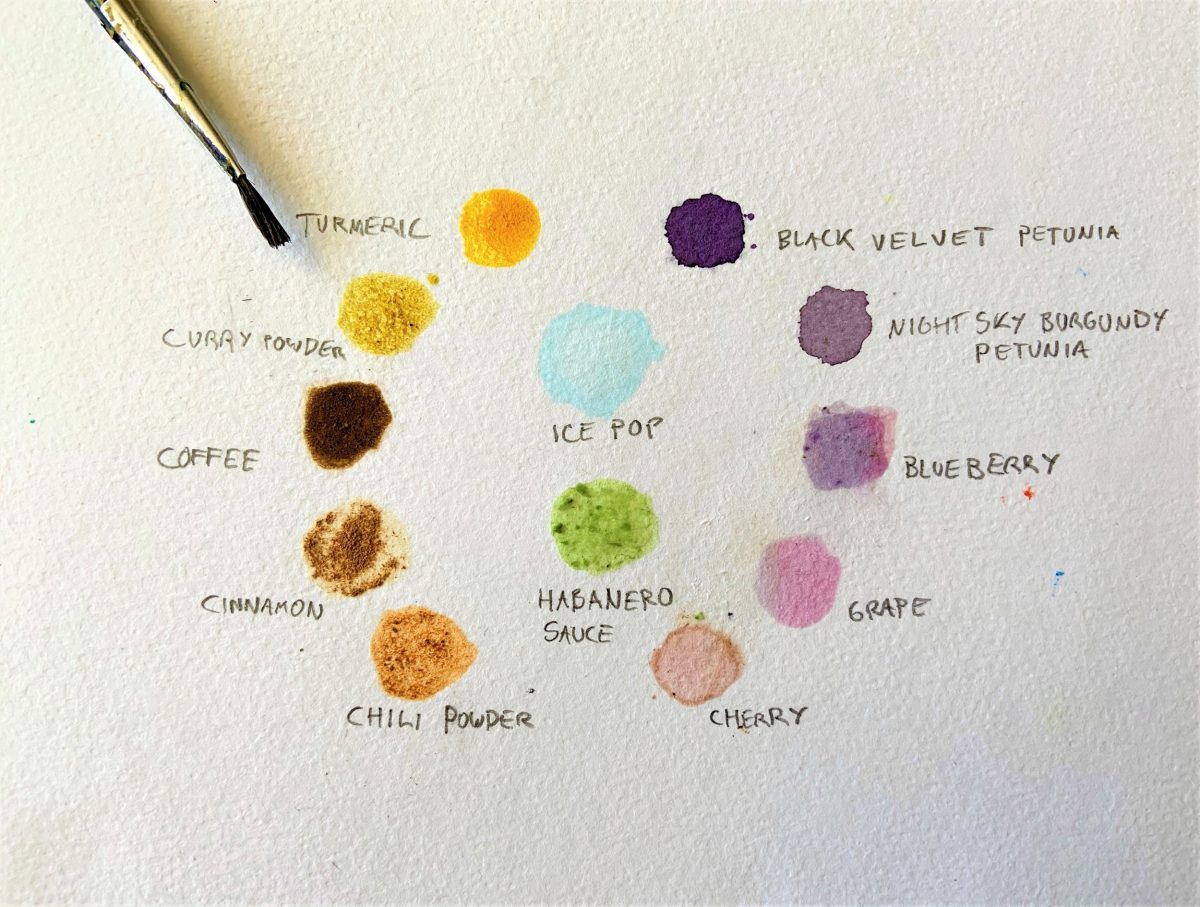 TURMERIC
BLACK VELVET PETUNIA
CURRY POWDER
NIGHT SKY BURGUNDY
PETUNIA
ICE POP
COFFEE
BLUEBERRY
CINNAMON
HABANERO
SAUCE
GRAPE
CHILI POWDER
CHERRY